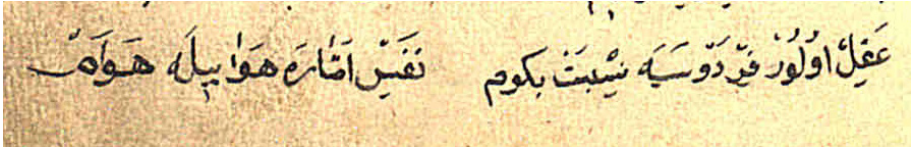 عَقِلْ اوُلُورْ فِرْدَوْسَيَه نِسْبَتْ بكوم نَفَسِ اَمَّارَه هَوَا بيلَه هَوَامْ